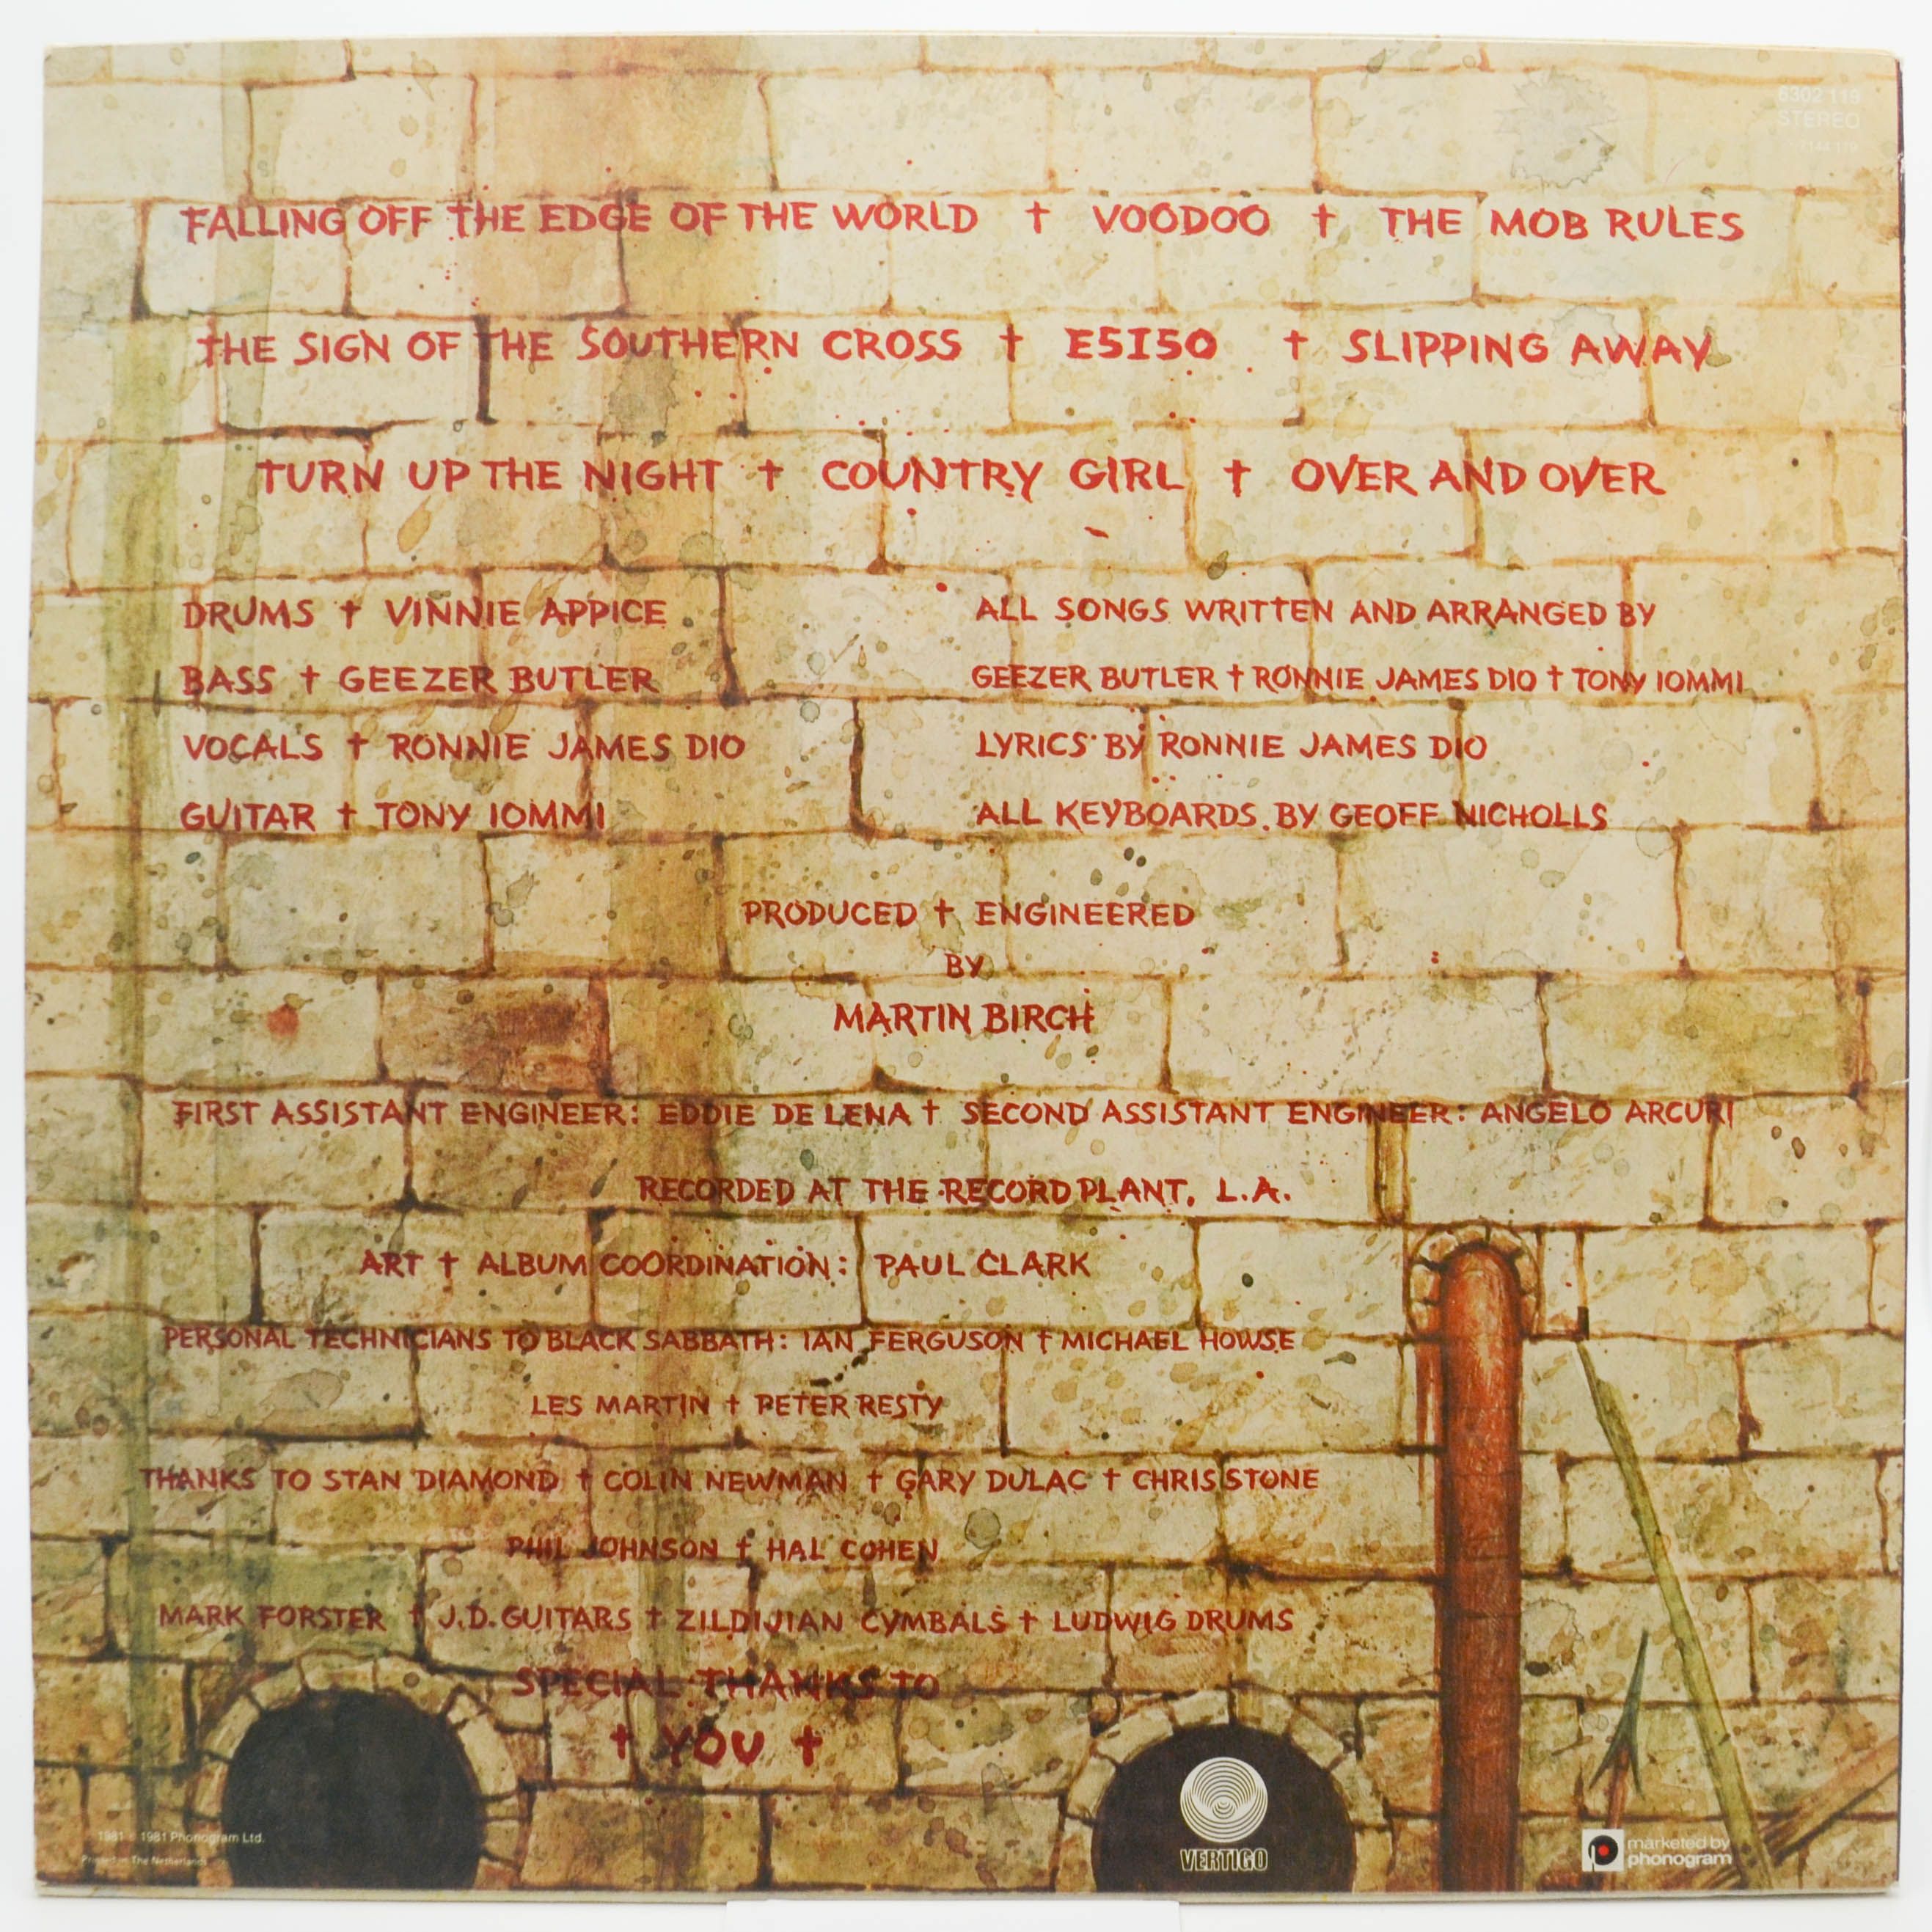 6302 119
STEREO
7144 119
FALLING OFF THE EDGE OF THE WORLD † VOODOO † THE MOB RULES
THE SIGN OF THE SOUTHERN CROSS † E5I5O † SLIPPING AWAY
TURN UP THE NIGHT † COUNTRY GIRL † OVER AND OVER
DRUMS † VINNIE APPICE
BASS † GEEZER BUTLER
VOCALS † RONNIE JAMES DIO
GUITAR † TONY IOMMI
ALL SONGS WRITTEN AND ARRANGED BY
GEEZER BUTLER † RONNIE JAMES DIO † TONY IOMMI
LYRICS BY RONNIE JAMES DIO
ALL KEYBOARDS BY GEOFF NICHOLLS
PRODUCED † ENGINEERED
BY
MARTIN BIRCH
FIRST ASSISTANT ENGINEER: EDDIE DE LENA † SECOND ASSISTANT ENGINEER: ANGELO ARCURI
RECORDED AT THE RECORD PLANT, L.A.
ART † ALBUM COORDINATION: PAUL CLARK
PERSONAL TECHNICIANS TO BLACK SABBATH: IAN FERGUSON † MICHAEL HOWSE
LES MARTIN † PETER RESTY
THANKS TO STAN DIAMOND † COLIN NEWMAN † GARY DULAC † CHRIS STONE
PHIL JOHNSON † HAL COHEN
MARK FORSTER † J.D. GUITARS † ZILDIJIAN CYMBALS † LUDWIG DRUMS
SPECIAL THANKS TO
† YOU †
1981 1981 Phonogram Ltd.
Printed in The Netherlands
VERTIGO
marketed by
phonogram